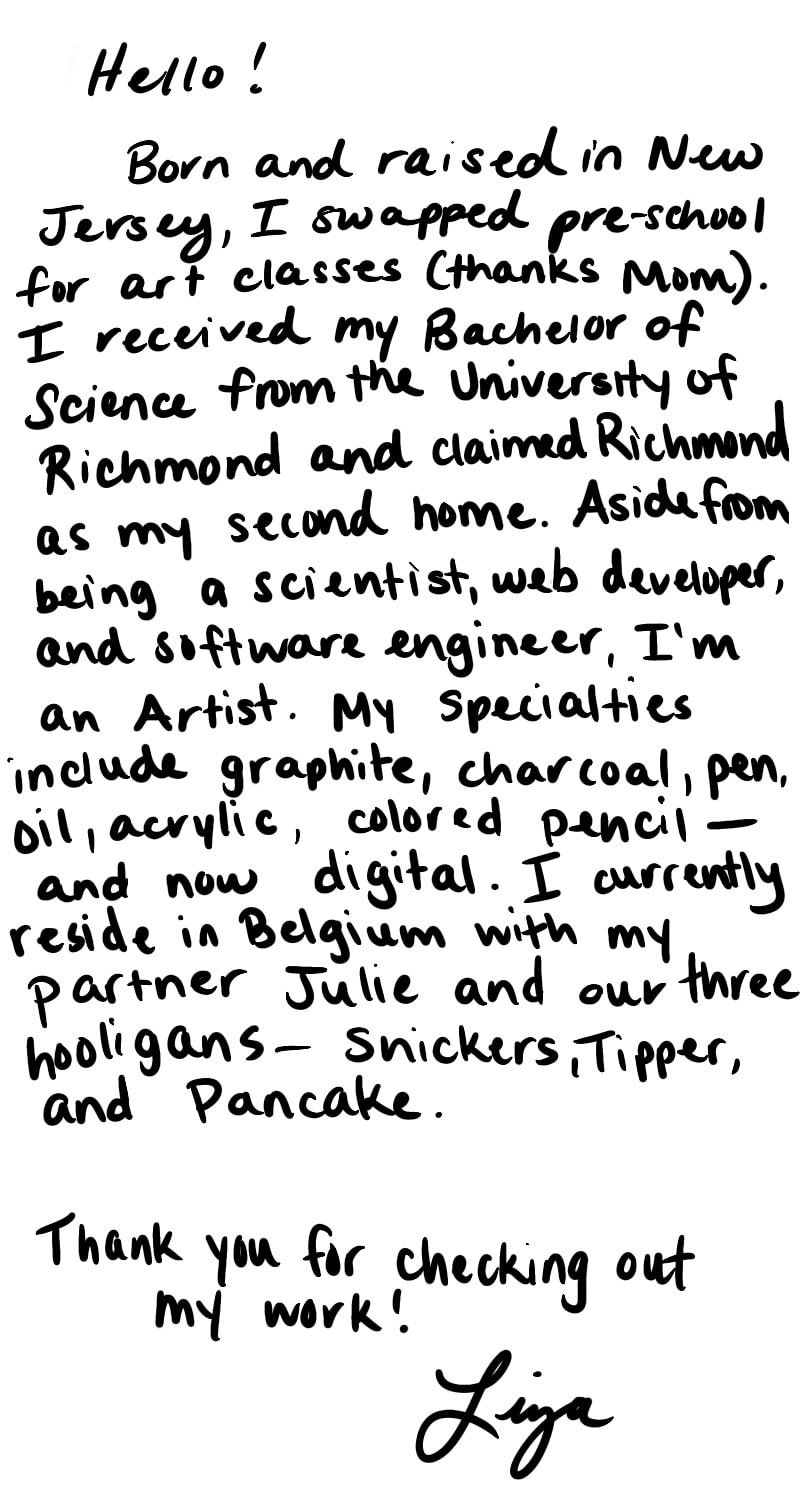 Hello!
Born and raised in New
Jersey, I swapped pre-school
for art classes (thanks Mom).
I received my Bachelor of
Science from the University of
Richmond and claimed Richmond
as my second home. Aside from
being a scientist, web developer,
and software engineer, I'm
an Artist. My Specialties
include graphite, charcoal, pen,
oil, acrylic, colored pencil—
and now digital. I currently
reside in Belgium with my
partner Julie and our three
hooligans— Snickers, Tipper,
and Pancake.
Thank you for checking out
my work!
Liza